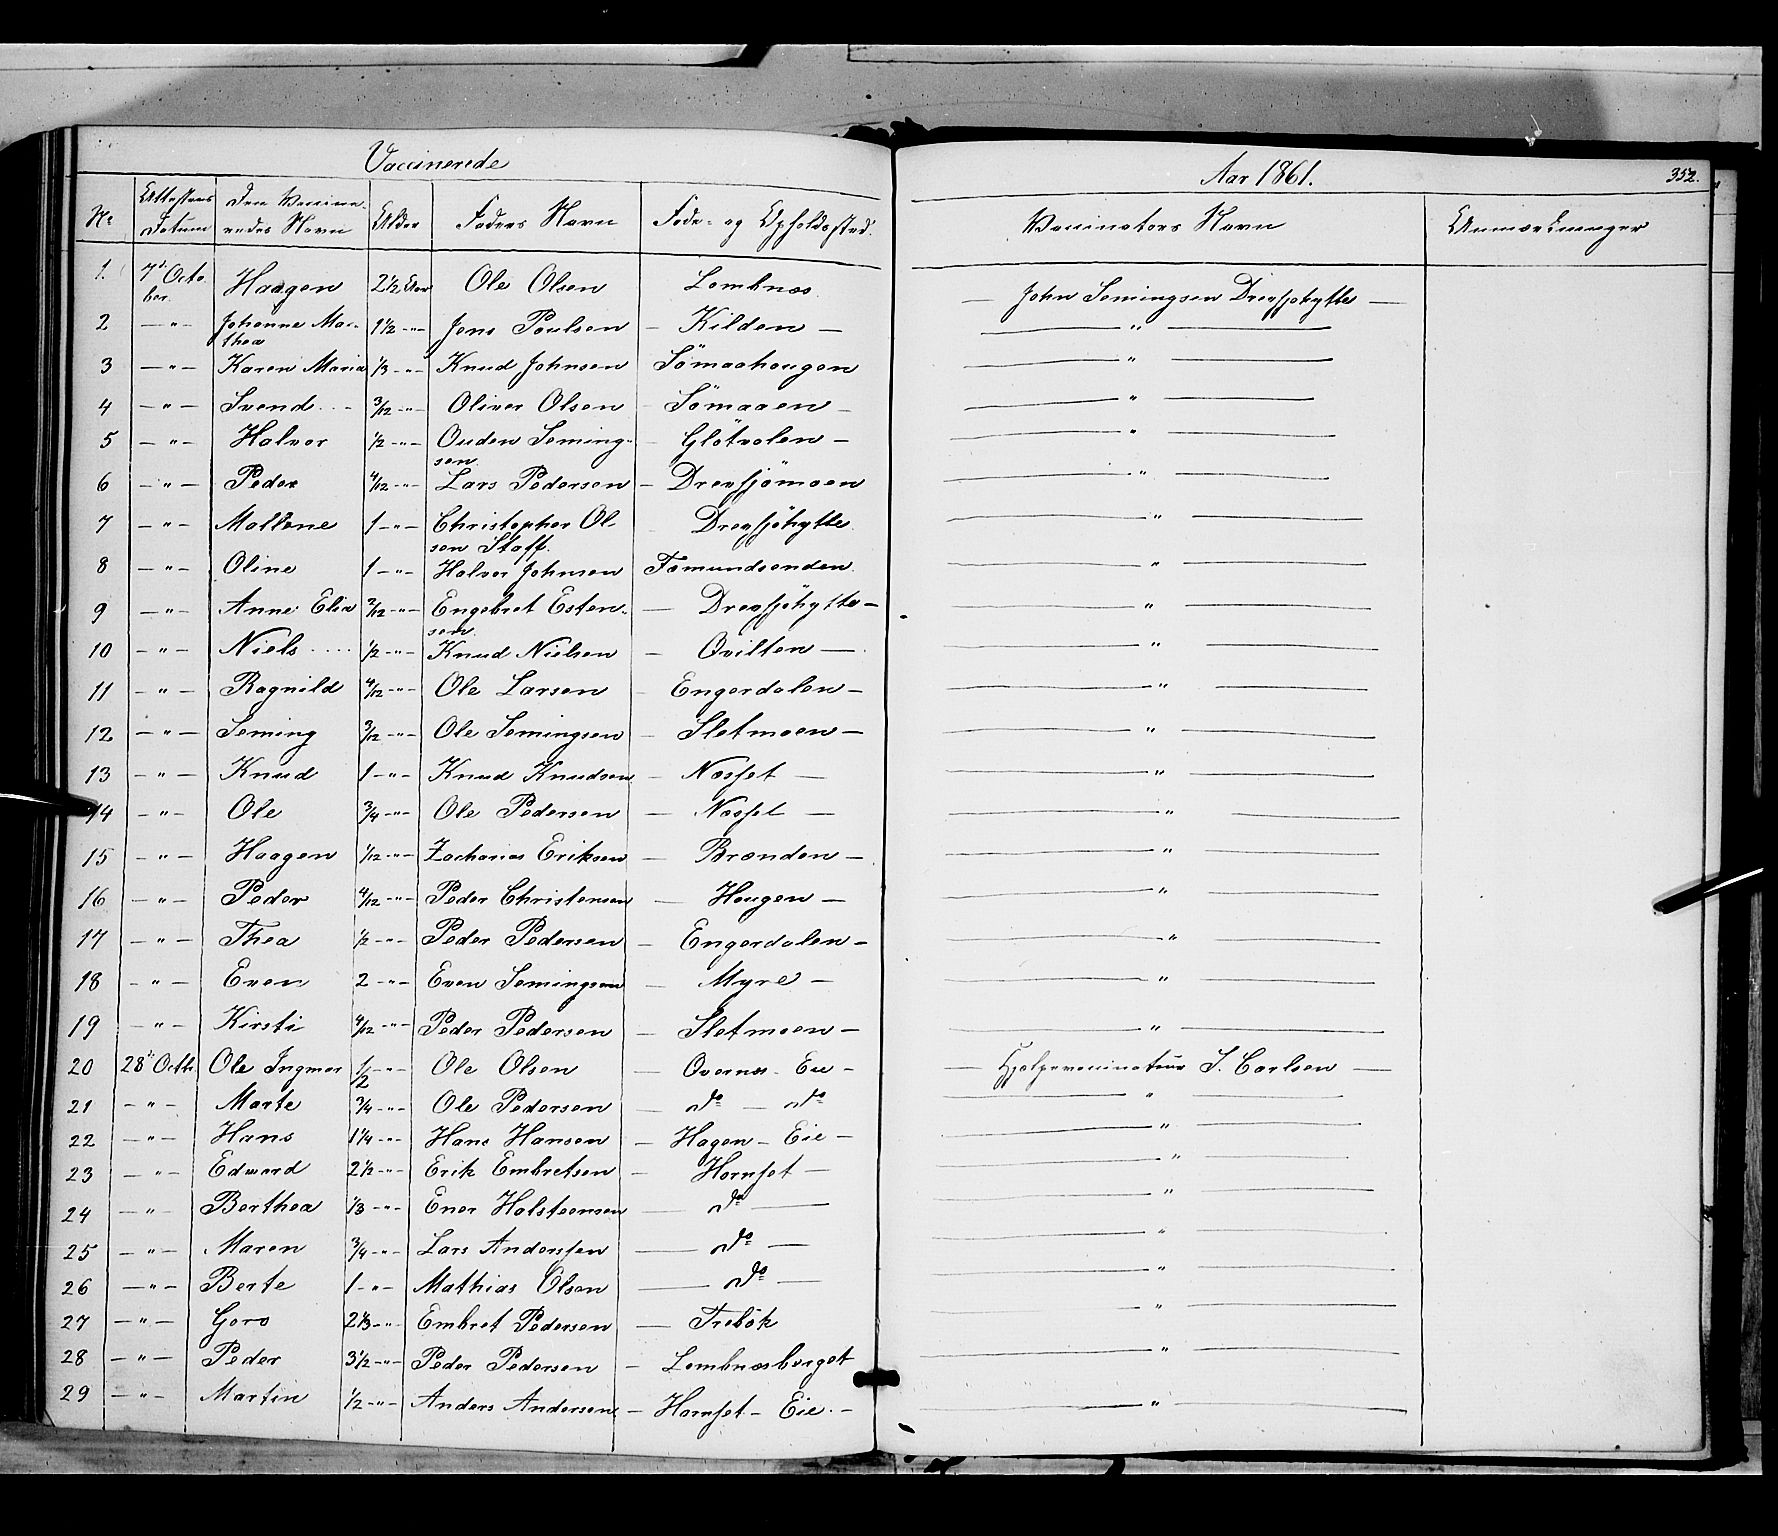 Vaccinerede Aar 1861. 352.
No Attestens Datum Den Vaccineredes Navn Alder Faders Navn Føde- og Opholdssted. Vaccinators Navn Anmærkninger
1. 7de October. Haagen 2 1/2 Aar Ole Olsen Lombnæs — John Semingsen Drevsjøhytte —
2 — " — Johanne Marthea 1 1/2 - " - Jens Poulsen — Kilden — — " —
3 — " — Karen Maria 1/3 - " - Knud Johnsen Sömaahougen — " —
4 — " — Svend 3/12 - " - Oliver Olsen — Sömaaen — — " —
5 — " — Halvor 1/2 - " - Ouden Semingsen — Glötvolen — — " —
6 — " — Peder 4/12 - " - Lars Pedersen — Drevsjömoen — " —
7 — " — Mallene 1 - " - Christopher Olsen Staff. Drevsjöhytte. — " —
8 — " — Oline 1 - " - Halvor Johnsen Fæmundsenden. — " —
9 — " — Anne Elia 2/12 - " - Engebret Estensen — Drevsjöhytte — — " —
10 — " — Niels 1/2 - " - Knud Nielsen — Qvilten — — " —
11 — " — Ragnild 4/12 - " - Ole Larsen — Engerdalen — — " —
12 — " — Seming 3/12 - " - Ole Semingsen — Sletmoen — — " —
13 — " — Knud 1 - " - Knud Knudsen — Næsset — — " —
14 — " — Ole 3/4 - " - Ole Pedersen — Næsset — — " —
15 — " — Haagen 1/12 - " - Zacharias Eriksen — Brænden — — " —
16 — " — Peder 4/12 - " - Peder Christensen — Hougen — — " —
17 — " — Thea 1/2 - " - Peder Pedersen — Engerdalen — — " —
18 — " — Even 2 - " - Even Semingsen — Myre — — " —
19 — " — Kirsti 4/12 - " - Peder Pedersen — Sletmoen — — " —
20 28de Octbr Ole Ingmar 1/2 - " - Ole Olsen — Overnæs Eie — — Hjelpevaccinateur J. Carlsen —
21 — " — Marte 3/4 - " - Ole Pedersen — do — do — " —
22 — " — Hans 1 1/4 - " - Hans Hansen — Hagen — Eie — — " —
23 — " — Edward 2 1/2 - " - Erik Embretsen — Hornset — — " —
24 — " — Berthea 1/3 - " - Ener Halsteensen — do — — " —
25 — " — Maren 3/4 - " - Lars Anderssen — do — — " —
26 — " — Berte 1 - " - Mathias Olsen — do — — " —
27 — " — Goro 2 1/3 - " - Embret Pedersen — Trebök — " —
28 — " — Peder 3 1/2 - " - Peder Pedersen — Lombnæsberget — " —
29 — " — Martin 1/2 - " - Anders Andersen — Hornset — Eie. — — " —